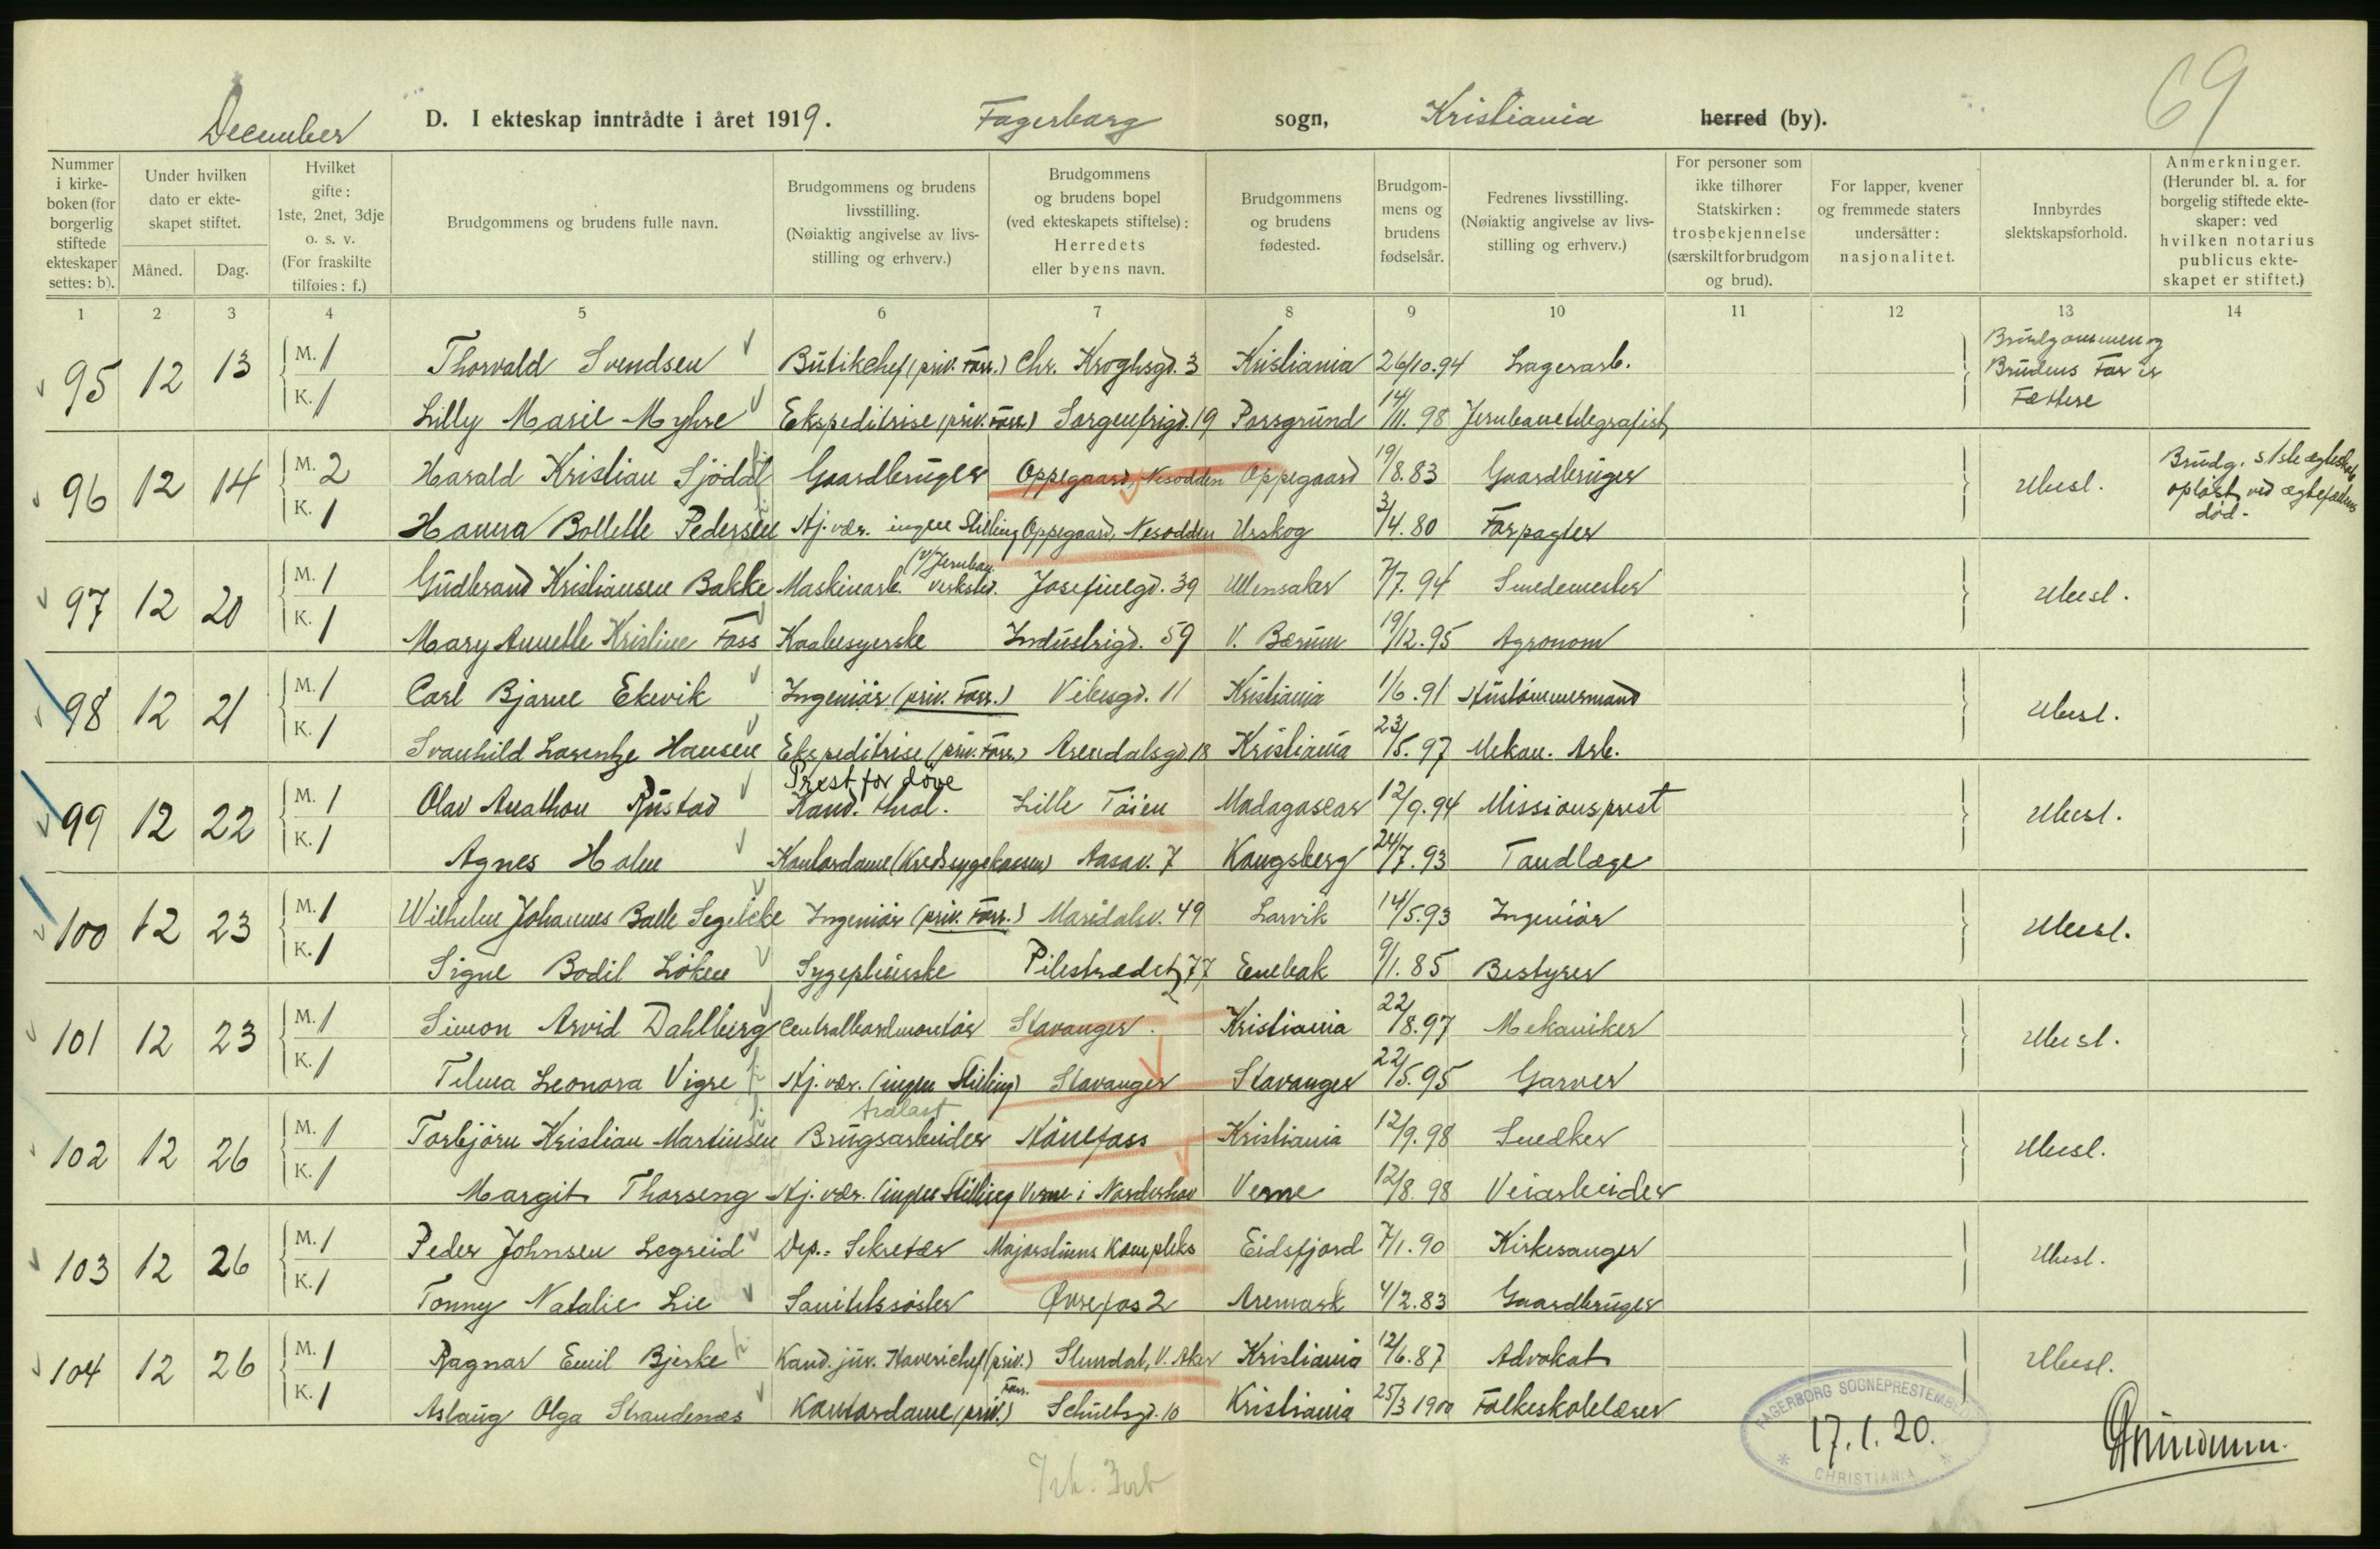 69
December D. I ekteskap inntrådte i året 1919. Fagerborg sogn, Kristiania herred (by).
Nummer i kirke-boken (for borgerlig stiftede ekteskaper settes: b).
Under hvilken dato er ekte-skapet stiftet.
Måned. Dag.
Hvilket gifte: 1ste, 2net, 3dje o. s. v. (For fraskilte tilføies: f.)
Brudgommens og brudens fulle navn.
Brudgommens og brudens livsstilling. (Nøiaktig angivelse av livs-stilling og erhverv.)
Brudgommens og brudens bopel (ved ekteskapets stiftelse): Herredets eller byens navn.
Brudgommens og brudens fødested.
Brudgom-mens og brudens fødselsår.
Fedrenes livsstilling. (Nøiaktig angivelse av livs-stilling og erhverv.)
For personer som ikke tilhører Statskirken: trosbekjennelse (særskilt for brudgom og brud).
For lapper, kvener og fremmede staters undersåtter: nasjonalitet.
Innbyrdes slektskapsforhold.
Anmerkninger. (Herunder bl. a. for borgelig stiftede ekte-skaper: ved hvilken notarius publicus ekte-skapet er stiftet.)
1 2 3 4 5 6 7 8 9 10 11 12 13 14
95 12 13 M. 1 Thorvald Svendsen Butikchef (priv. Forr.) Chr. Kroghsgd. 3 Kristiania 26/10.94 Lagerarb. Brudgommen og Brudens Far er Fættere
K. 1 Lilly Marie Myhre Ekspeditrise (priv. Forr.) Sorgenfrigd. 19 Porsgrund 14/11.98 Jernbanetelegrafist
96 12 14 M. 2 Harald Kristian Sjödal Gaardbruger Oppegaard, Nesodden Oppegaard 19/8.83 Gaardbruger Ubesl. Brudg. s 1ste ægteskab opløst ved ægtefællens død.
K. 1 Hanna Bollette Pedersen Hj. vær. ingen Stilling Oppegaard, Nesodden Urskog 3/4.80 Forpagter
97 12 20 M. 1 Gudbrand Kristiansen Bakke Maskinarb. (v/Jernban. verksted. Josefinegd. 39 Ullensaker 7/7.94 Smedemester Ubesl.
K. 1 Mary Annette Kristine Foss Kaabesyerske Industrigd. 59 V. Bærum 19/12.95 Agronom
98 12 21 M. 1 Carl Bjarne Ekevik Ingeniör (priv. Forr.) Vibesgd. 11 Kristiania 1/6.91 Hustömmermand Ubesl.
K. 1 Svanhild Lorentze Hansen Ekspeditrise (priv. Forr.) Arendalsgd. 18 Kristiania 23/5.97 Mekan. Arb.
99 12 22 M. 1 Olav Anathon Rustad Prest for döve Kand. theol. Lille Töien Madagascar 12/9.94 Missionsprest Ubesl.
K. 1 Agnes Holm Kontordame (Kredssygekassen) Aasav. 7 Kongsberg 24/7.93 Tandlæge
100 12 23 M. 1 Wilhelm Johannes Balle Segelcke Ingeniör (priv. Forr.) Maridalsv. 49 Larvik 14/5.93 Ingeniör Ubesl.
K. 1 Signe Bodil Löken Sygepleierske Pilestrædet 77 Enebak 9/1.85 Bestyrer
101 12 23 M. 1 Simon Arvid Dahlberg Centralbordmontör Stavanger. Kristiania 22/8.97 Mekaniker Ubesl.
K. 1 Telma Leonora Vigre Hj. vær. (ingen Stilling) Stavanger Stavanger 22/5.95 Garver
102 12 26 M. 1 Torbjörn Kristian Martinsen Brugsarbeider Hönefoss Kristiania 12/9.98 Snedker Ubesl.
K. 1 Margit Thorseng Hj. vær. (ingen Stilling) Verne i Norderhov Verne 12/8.98 Veiarbeider
103 12 26 M. 1 Peder Johnsen Legreid Dep.= Sekretær Majorstuens Kompleks Eidsfjord 7/1.90 Kirkesanger Ubesl.
K. 1 Tonny Natalie Lie Sanitetssöster Øvrefos 2 Aremark 4/2.83 Gaardbruger
104 12 26 M. 1 Ragnar Emil Bjerke Kand. jur. Haverichef (priv.) Slemdal, V. Aker Kristiania 12/6.87 Advokat Ubesl.
K. 1 Aslaug Olga Strandenæs Kontordame (priv. Forr.) Schultsgd. 10 Kristiania 25/3 1900 Folkeskolelærer
FAGERBORG SOGNEPRESTEMBEDE
17.1.20.
CHRISTIANIA